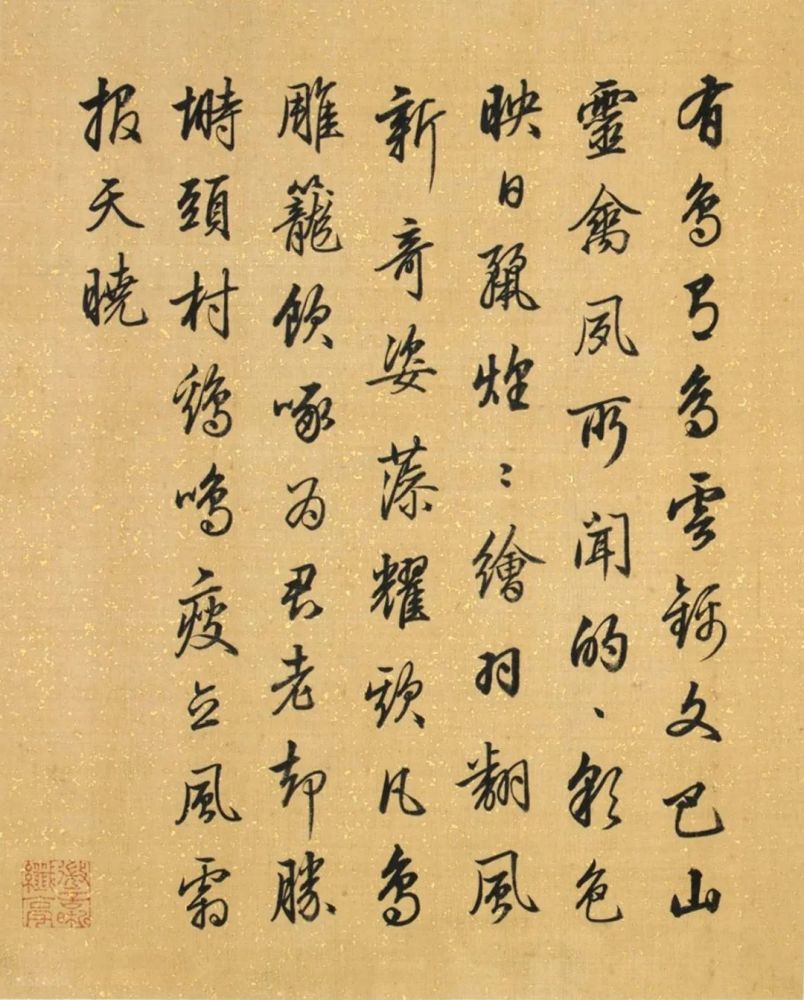 有鳥有鳥雲錦文巴山
靈禽夙所聞的、彩色
映日麗煌〻繪羽翻風
新奇姿藻耀凡鳥
雕籠飲啄為君老却勝
塒頭村鷄鳴瘦立風霜
報天曉